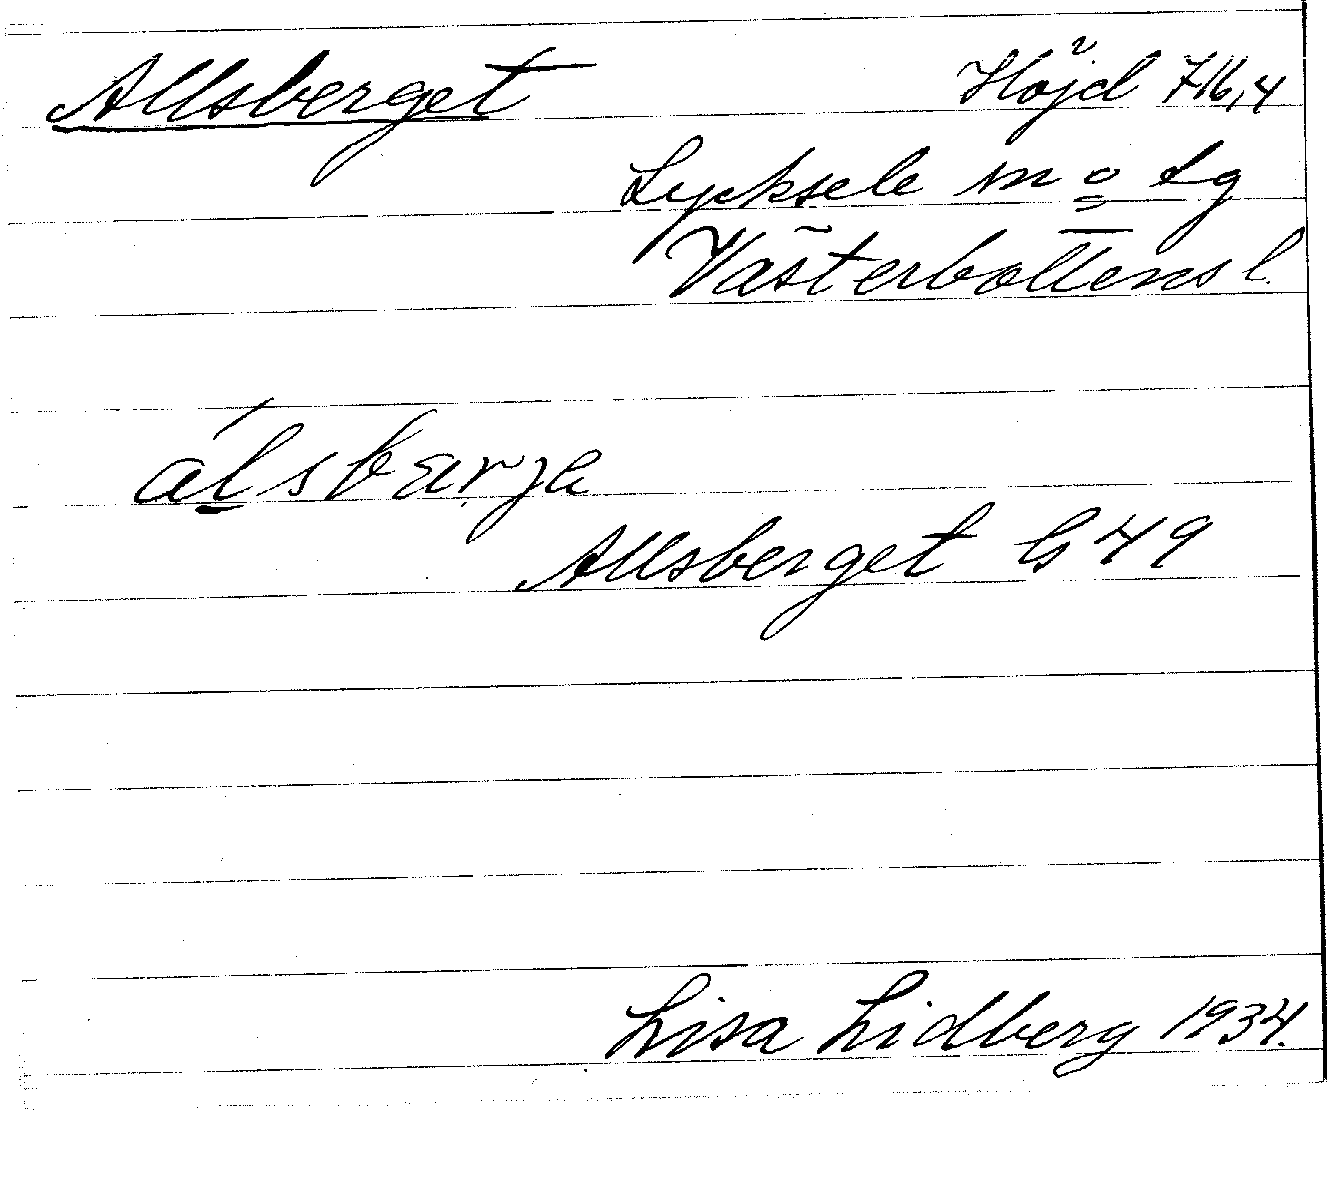 Allsberget Höjd 716,4
Lycksele m o tg
Västerbottens l.
álsbærja
Allsberget G 49
Lisa Lidberg 1934.